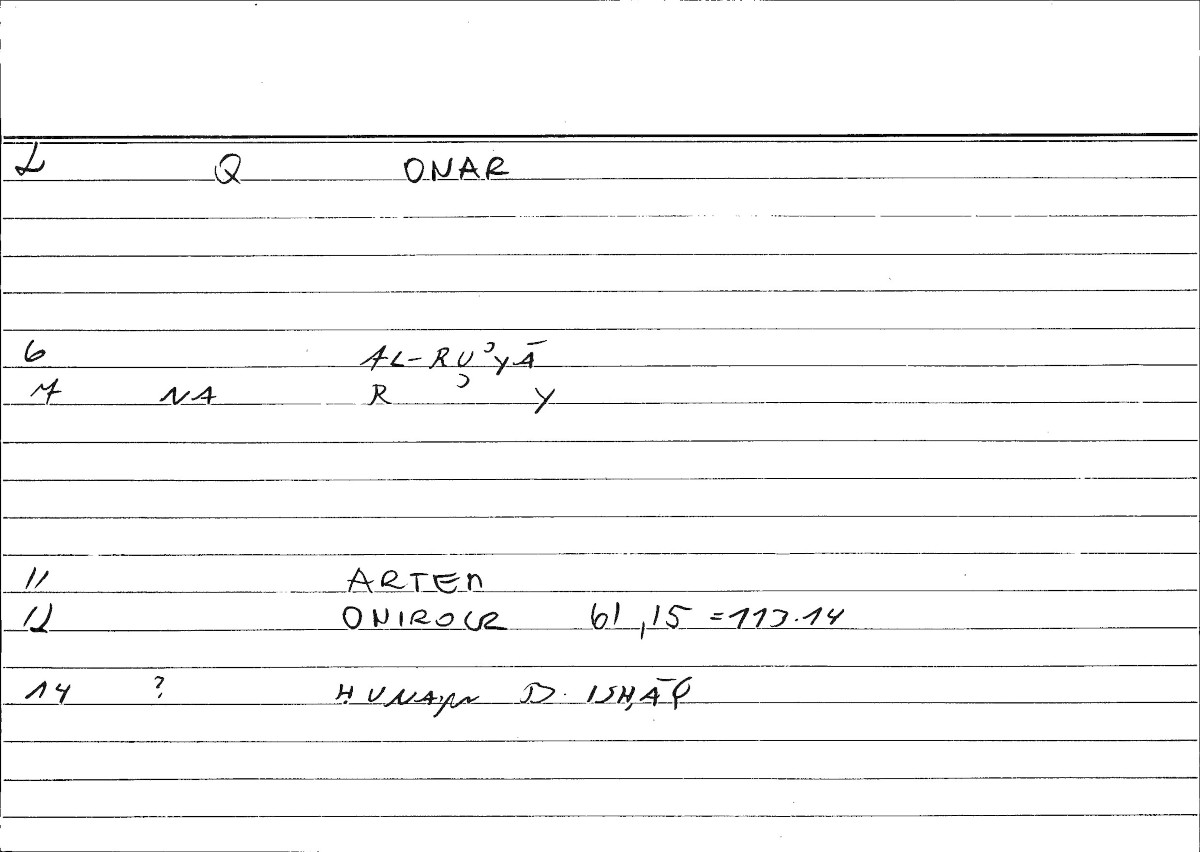 L Q ONAR
6 AL-RUʾYĀ
7 NA R ʾ Y
11 ARTEM
12 ONIROCR 61,15 =113.14
14 ? ḤUNAYN B. ISḤĀQ